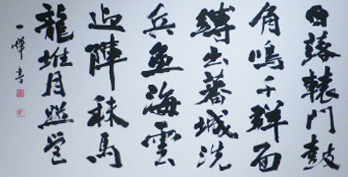 日落轅門鼓
角鳴千群面
縛出蕃城洗
兵魚海雲
迎陣秣馬
龍堆月照營
一峰書